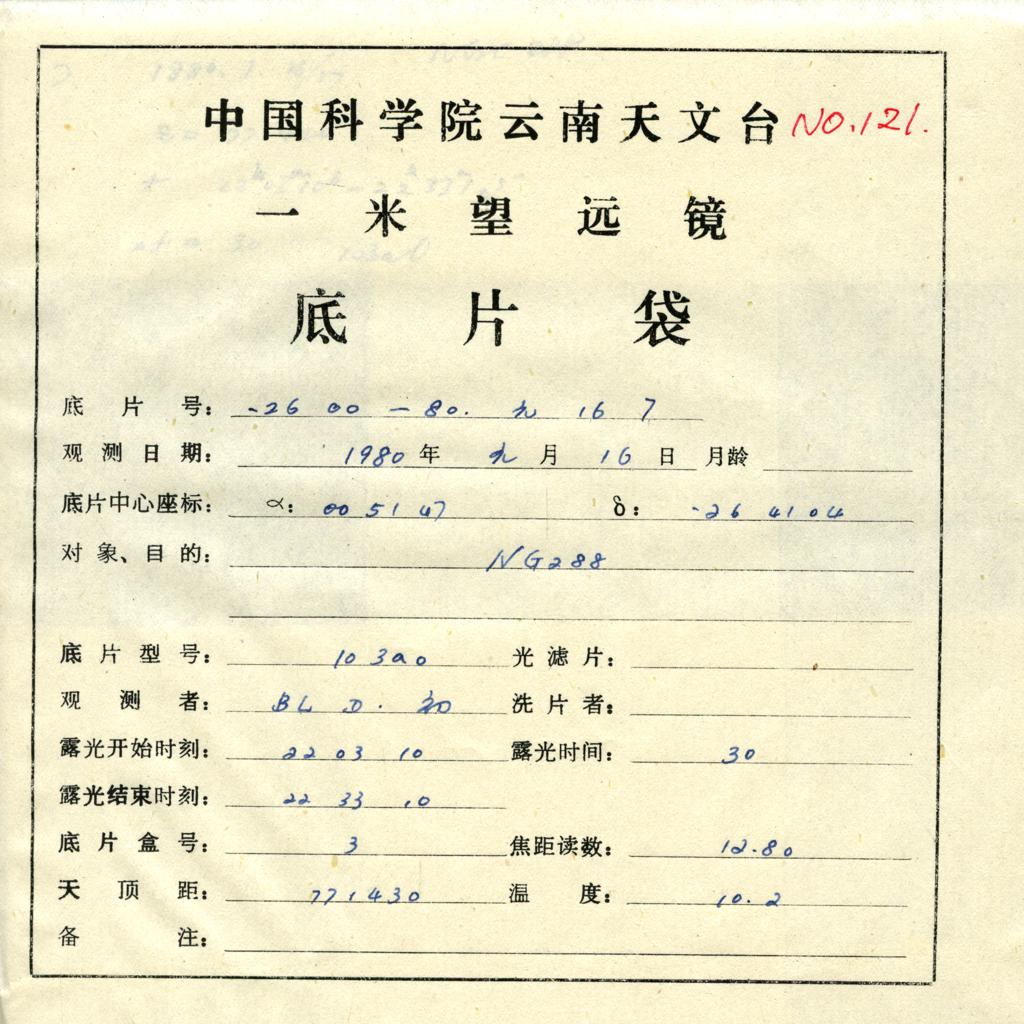 中国科学院云南天文台 NO.121.
一米望远镜
底片袋
底片号: -26 00 - 80. 九 16 7
观测日期: 1980年 九月 16日 月龄
底片中心座标: α: 00 51 47 δ: -26 41 04
对象、目的: NG288
底片型号: 103a0 光滤片:
观测者: BL D. 初 洗片者:
露光开始时刻: 22 03 10 露光时间: 30
露光结束时刻: 22 33 10
底片盒号: 3 焦距读数: 12.80
天顶距: 771430 温度: 10.2
备注: